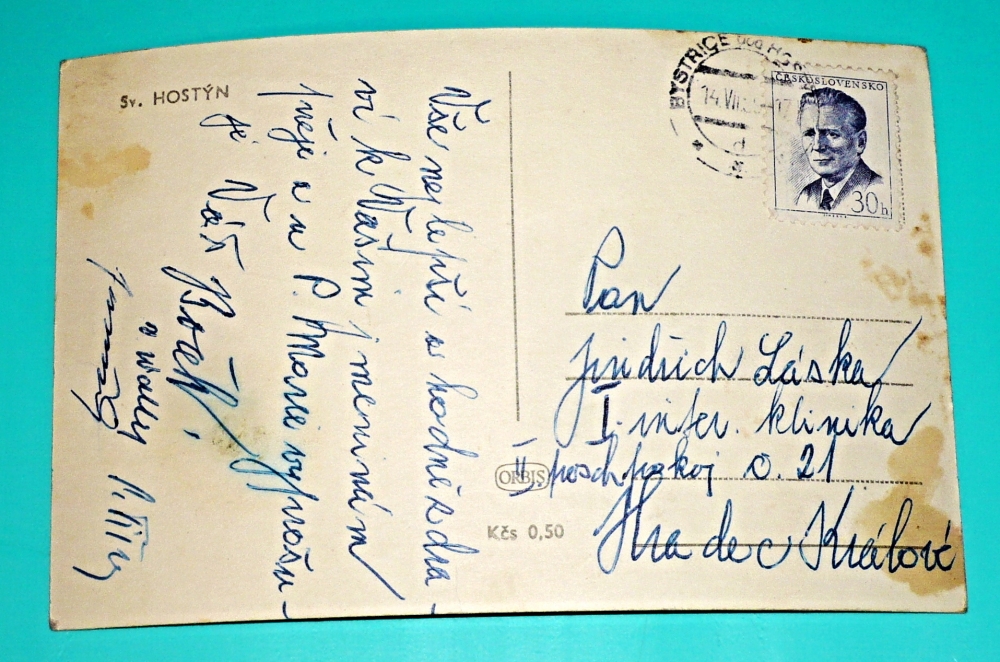 Sv. HOSTÝN
Vše nejlepší a hodně zdra-
ví k Vašim jmeninám
přeje a u P. Marie vyprošu-
je Váš
BYSTŘICE POD HOS
14.VII.5 -17
ČESKOSLOVENSKO
30h
Pan
Jindřich Láska
I. inter. klinika
II. posch. pokoj č. 21
Hradec Králové
ORBIS
Kčs 0,50